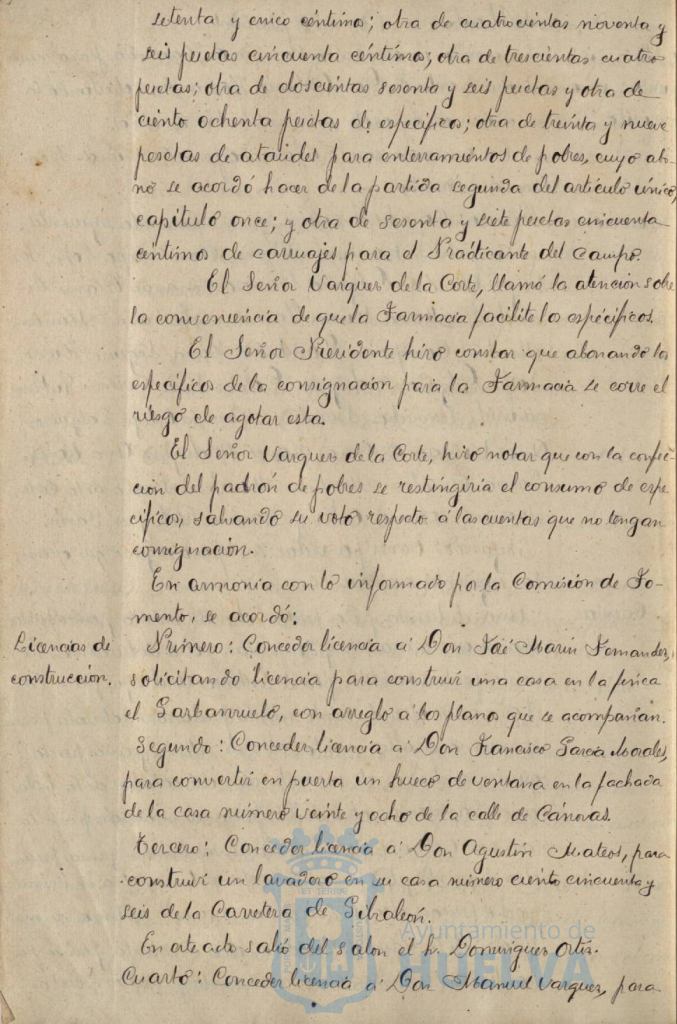 setenta y cinco céntimos; otra de cuatrocientas noventa y
seis pesetas cincuenta céntimos; otra de trescientas cuatro
pesetas; otra de doscientas sesenta y seis pesetas y otra de
ciento ochenta pesetas de específicos; otra de treinta y nueve
pesetas de ataudes para enterramientos de pobres, cuyo abo-
no se acordó hacer de la partida segunda del artículo único,
capítulo once; y otra de sesenta y siete pesetas cincuenta
céntimos de carruajes para el Practicante del Campo.
El Señor Vazquez de la Corte, llamó la atención sobre
la conveniencia de que la Farmacia facilite los específicos.
El Señor Presidente hizo constar que abonando los
específicos de la consignación para la Farmacia se corre el
riesgo de agotar esta.
El Señor Vazquez de la Corte, hizo notar que con la confec-
ción del padrón de pobres se restingiría el consumo de espe-
cíficos, salvando su voto respecto á las cuentas que no tengan
consignación.
En armonía con lo informado por la Comisión de Fo-
mento, se acordó:
Licencias de
construcción.
Primero: Conceder licencia á Don José Marín Fernandez,
solicitando licencia para construir una casa en la finca
el Garbanzuelo, con arreglo á los planos que se acompañan.
Segundo: Conceder licencia á Don Francisco García Morales,
para convertir en puerta un hueco de ventana en la fachada
de la casa número veinte y ocho de la calle de Cánovas.
Tercero: Conceder licencia á Don Agustín Mateos, para
construir un lavadero en su casa número ciento cincuenta y
seis de la Carretera de Gibraleón.
En este acto salió del salon el Sr. Dominguez Ortiz.
Cuarto: Conceder licencia á Don Manuel Vazquez, para
Ayuntamiento de
HUELVA